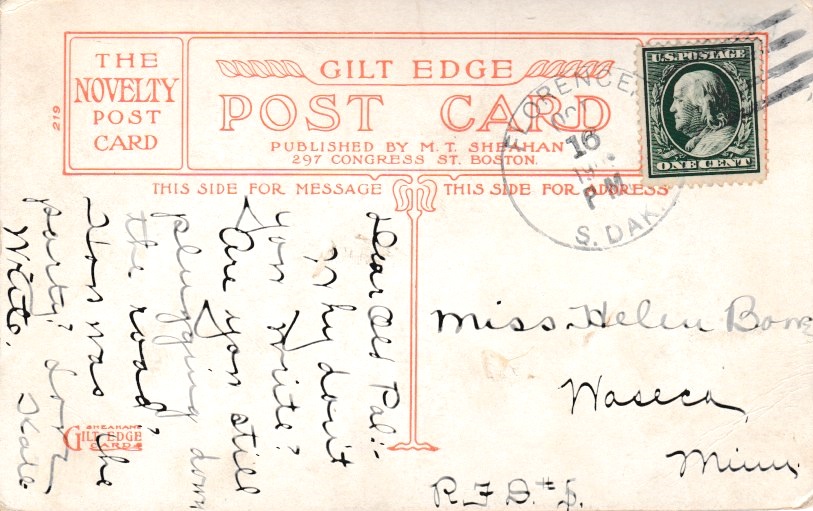 THE
NOVELTY
POST
CARD
219
GILT EDGE
POST CARD
PUBLISHED BY M. T. SHEAHAN
297 CONGRESS ST. BOSTON.
THIS SIDE FOR MESSAGE
THIS SIDE FOR ADDRESS
FLORENCE
OCT
16
PM
S. DAK.
U.S. POSTAGE
ONE CENT
Dear Old Pal:-
Why don't
you write?
Are you still
plugging down
the road?
How was the
party?
Write,
Kate
Miss Helen
Waseca
Minn
R.F.D. #
SHEAHAN'S
GILT EDGE
CARDS